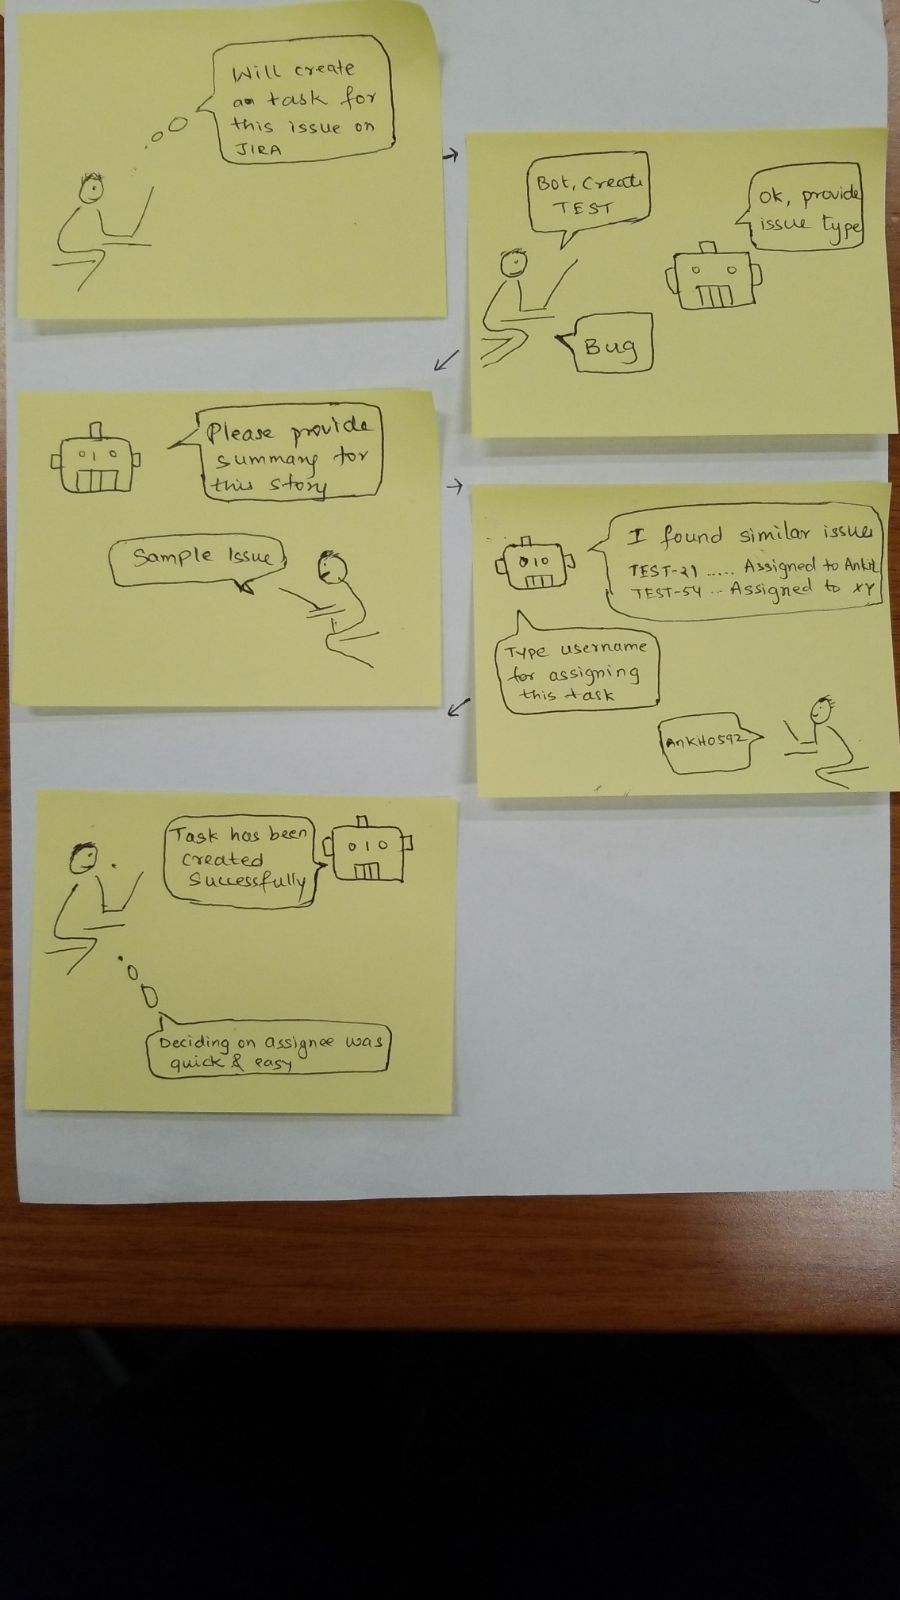 Will create
an task for
this issue on
JIRA
Bot, Create
TEST
Ok, provide
issue type
Bug
Please provide
summary for
this story
Sample Issue
I found similar issue
TEST-21 ..... Assigned to Ankit
TEST-54 .. Assigned to XY
Type username
for assigning
this task
Ankit0592
Task has been
created
Successfully
Deciding on assignee was
quick & easy